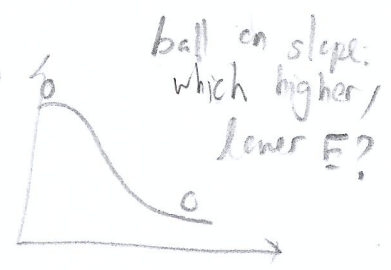 ball on slope:
which higher,
lower E?